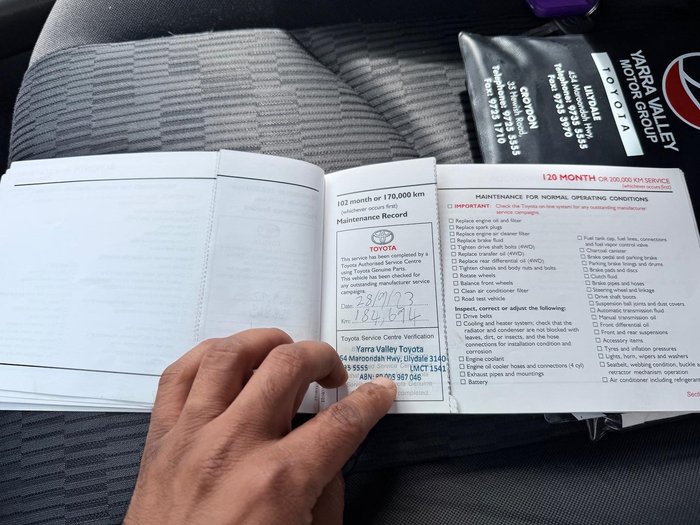 YARRA VALLEY
MOTOR GROUP
TOYOTA
LILYDALE
454 Maroondah Hwy,
Telephone: 9735 5555
Fax: 9735 3970
CROYDON
35 Hewish Road,
Telephone: 9725 5555
Fax: 9723 1710
102 month or 170,000 km
(whichever occurs first)
Maintenance Record
TOYOTA
This service has been completed by a
Toyota Authorised Service Centre
using Toyota Genuine Parts.
This vehicle has been checked for
any outstanding manufacturer service
campaigns.
Date: 28/9/23
Km: 184,694
Toyota Service Centre Verification
Yarra Valley Toyota
54 Maroondah Hwy, Lilydale 3140
35 5555 LMCT 1541
ABN: 80 005 967 046
completed.
120 MONTH OR 200,000 KM SERVICE
(whichever occurs first)
MAINTENANCE FOR NORMAL OPERATING CONDITIONS
IMPORTANT: Check the Toyota on-line system for any outstanding manufacturer
service campaigns.
Replace engine oil and filter
Replace spark plugs
Replace engine air cleaner filter
Replace brake fluid
Tighten drive shaft bolts (4WD)
Replace transfer oil (4WD)
Replace rear differential oil (4WD)
Tighten chassis and body nuts and bolts
Rotate wheels
Balance front wheels
Clean air conditioner filter
Road test vehicle
Inspect, correct or adjust the following:
Drive belts
Cooling and heater system; check that the
radiator and condenser are not blocked with
leaves, dirt, or insects, and the hose
connections for installation condition and
corrosion
Engine coolant
Engine oil cooler hoses and connections (4 cyl)
Exhaust pipes and mountings
Battery
Fuel tank cap, fuel lines, connections
and fuel vapor control valve
Charcoal canister
Brake pedal and parking brake
Parking brake linings and drums
Brake pads and discs
Clutch fluid
Brake pipes and hoses
Steering wheel and linkage
Drive shaft boots
Suspension ball joints and dust covers
Automatic transmission fluid
Manual transmission oil
Front differential oil
Front and rear suspensions
Accessory items
Tyres and inflation pressures
Lights, horn, wipers and washers
Seatbelt, webbing condition, buckle a
retractor mechanism operation
Air conditioner including refrigera
Secti